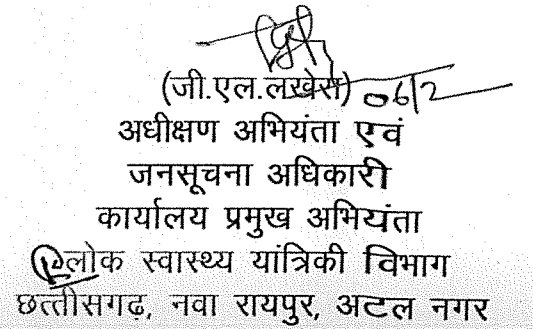 (जी.एल.लखेरा) 06/2
अधीक्षण अभियंता एवं
जनसूचना अधिकारी
कार्यालय प्रमुख अभियंता
लोक स्वास्थ्य यांत्रिकी विभाग
छत्तीसगढ़, नवा रायपुर, अटल नगर